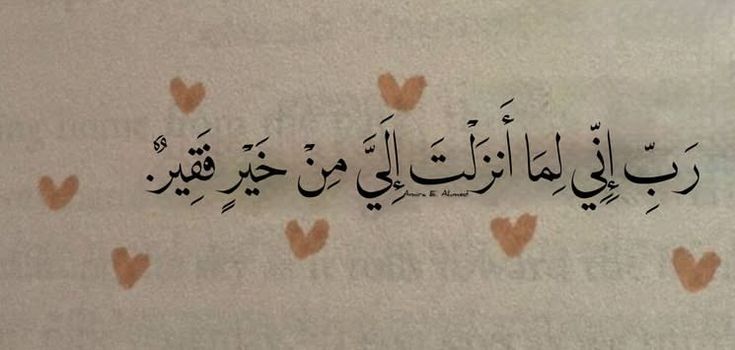 رَبِّ إِنِّي لِمَا أَنزَلْتَ إِلَيَّ مِنْ خَيْرٍ فَقِيرٌ.
Amira E. Ahmed